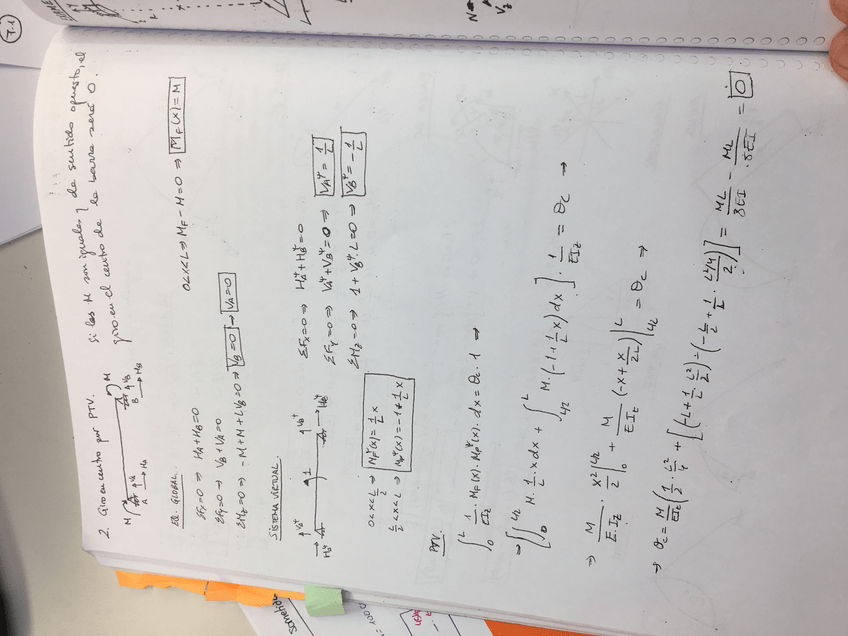 7.1
2. Giro en centro por PTV.
Si los M son iguales y de sentido opuesto, el
giro en el centro de la barra será 0.
M A V_A H_A B V_B H_B M
0<x<L ⇒ M_F - M = 0 ⇒ M_F(x) = M
EQ. GLOBAL
ΣF_x=0 ⇒ H_A+H_B=0
ΣF_y=0 ⇒ V_B+V_A=0
ΣM_z=0 ⇒ -M+M+LV_B=0 ⇒ V_B=0 → V_A=0
SISTEMA VIRTUAL
H_A^ψ V_A^ψ 1 V_B^ψ H_B^ψ
ΣF_x=0 ⇒ H_A^ψ+H_B^ψ=0
ΣF_y=0 ⇒ V_A^ψ+V_B^ψ=0 ⇒ V_A^ψ = 1/L
ΣM_z=0 ⇒ 1+V_B^ψ·L=0 ⇒ V_B^ψ = -1/L
0<x<L/2 ⇒ M_F^ψ(x) = 1/L x
L/2<x<L ⇒ M_F^ψ(x) = -1+1/L x
PTV.
∫_0^L 1/EI_z · M_F(x) · M_F^ψ(x) · dx = θ_c · 1 ⇒
⇒ [∫_0^{L/2} M · 1/L · x dx + ∫_{L/2}^L M · (-1+1/L x) dx] · 1/EI_z = θ_c →
⇒ M/E.I_z · x²/2 |_0^{L/2} + M/EI_z (-x+x/2L)|_{L/2}^L = θ_c ⇒
⇒ θ_c = M/EI_z (1/2 · L²/4 + [(-L+1/L · L²/2) - (-L/2+1/L · L²/4/2)] = ML/8EI - ML/8EI = 0
N V_z